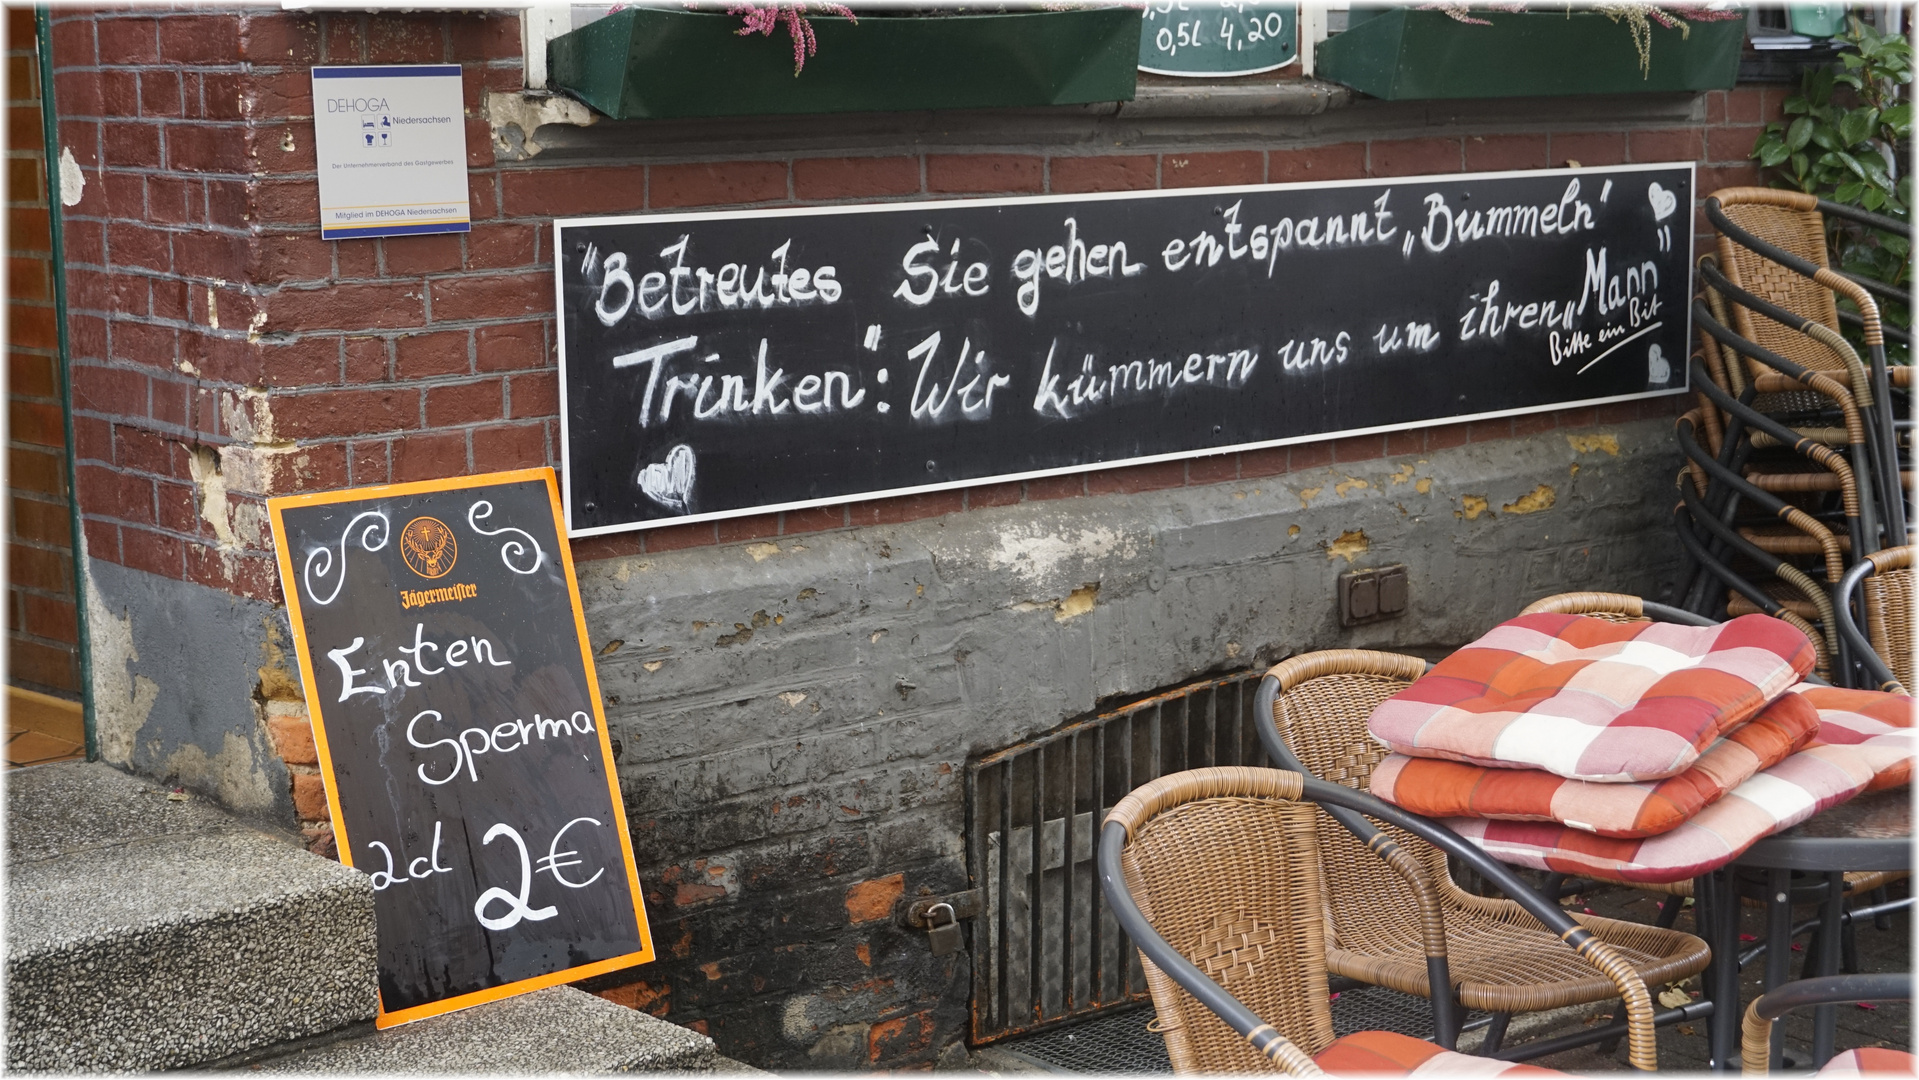 0,5l 4,20
DEHOGA
Niedersachsen
Der Unternehmerverband des Gastgewerbes
Mitglied im DEHOGA Niedersachsen
"Betreutes Sie gehen entspannt „Bummeln"
Trinken": Wir kümmern uns um ihren „Mann"
Bitte ein Bit
Jägermeister
Enten
Sperma
2cl 2€